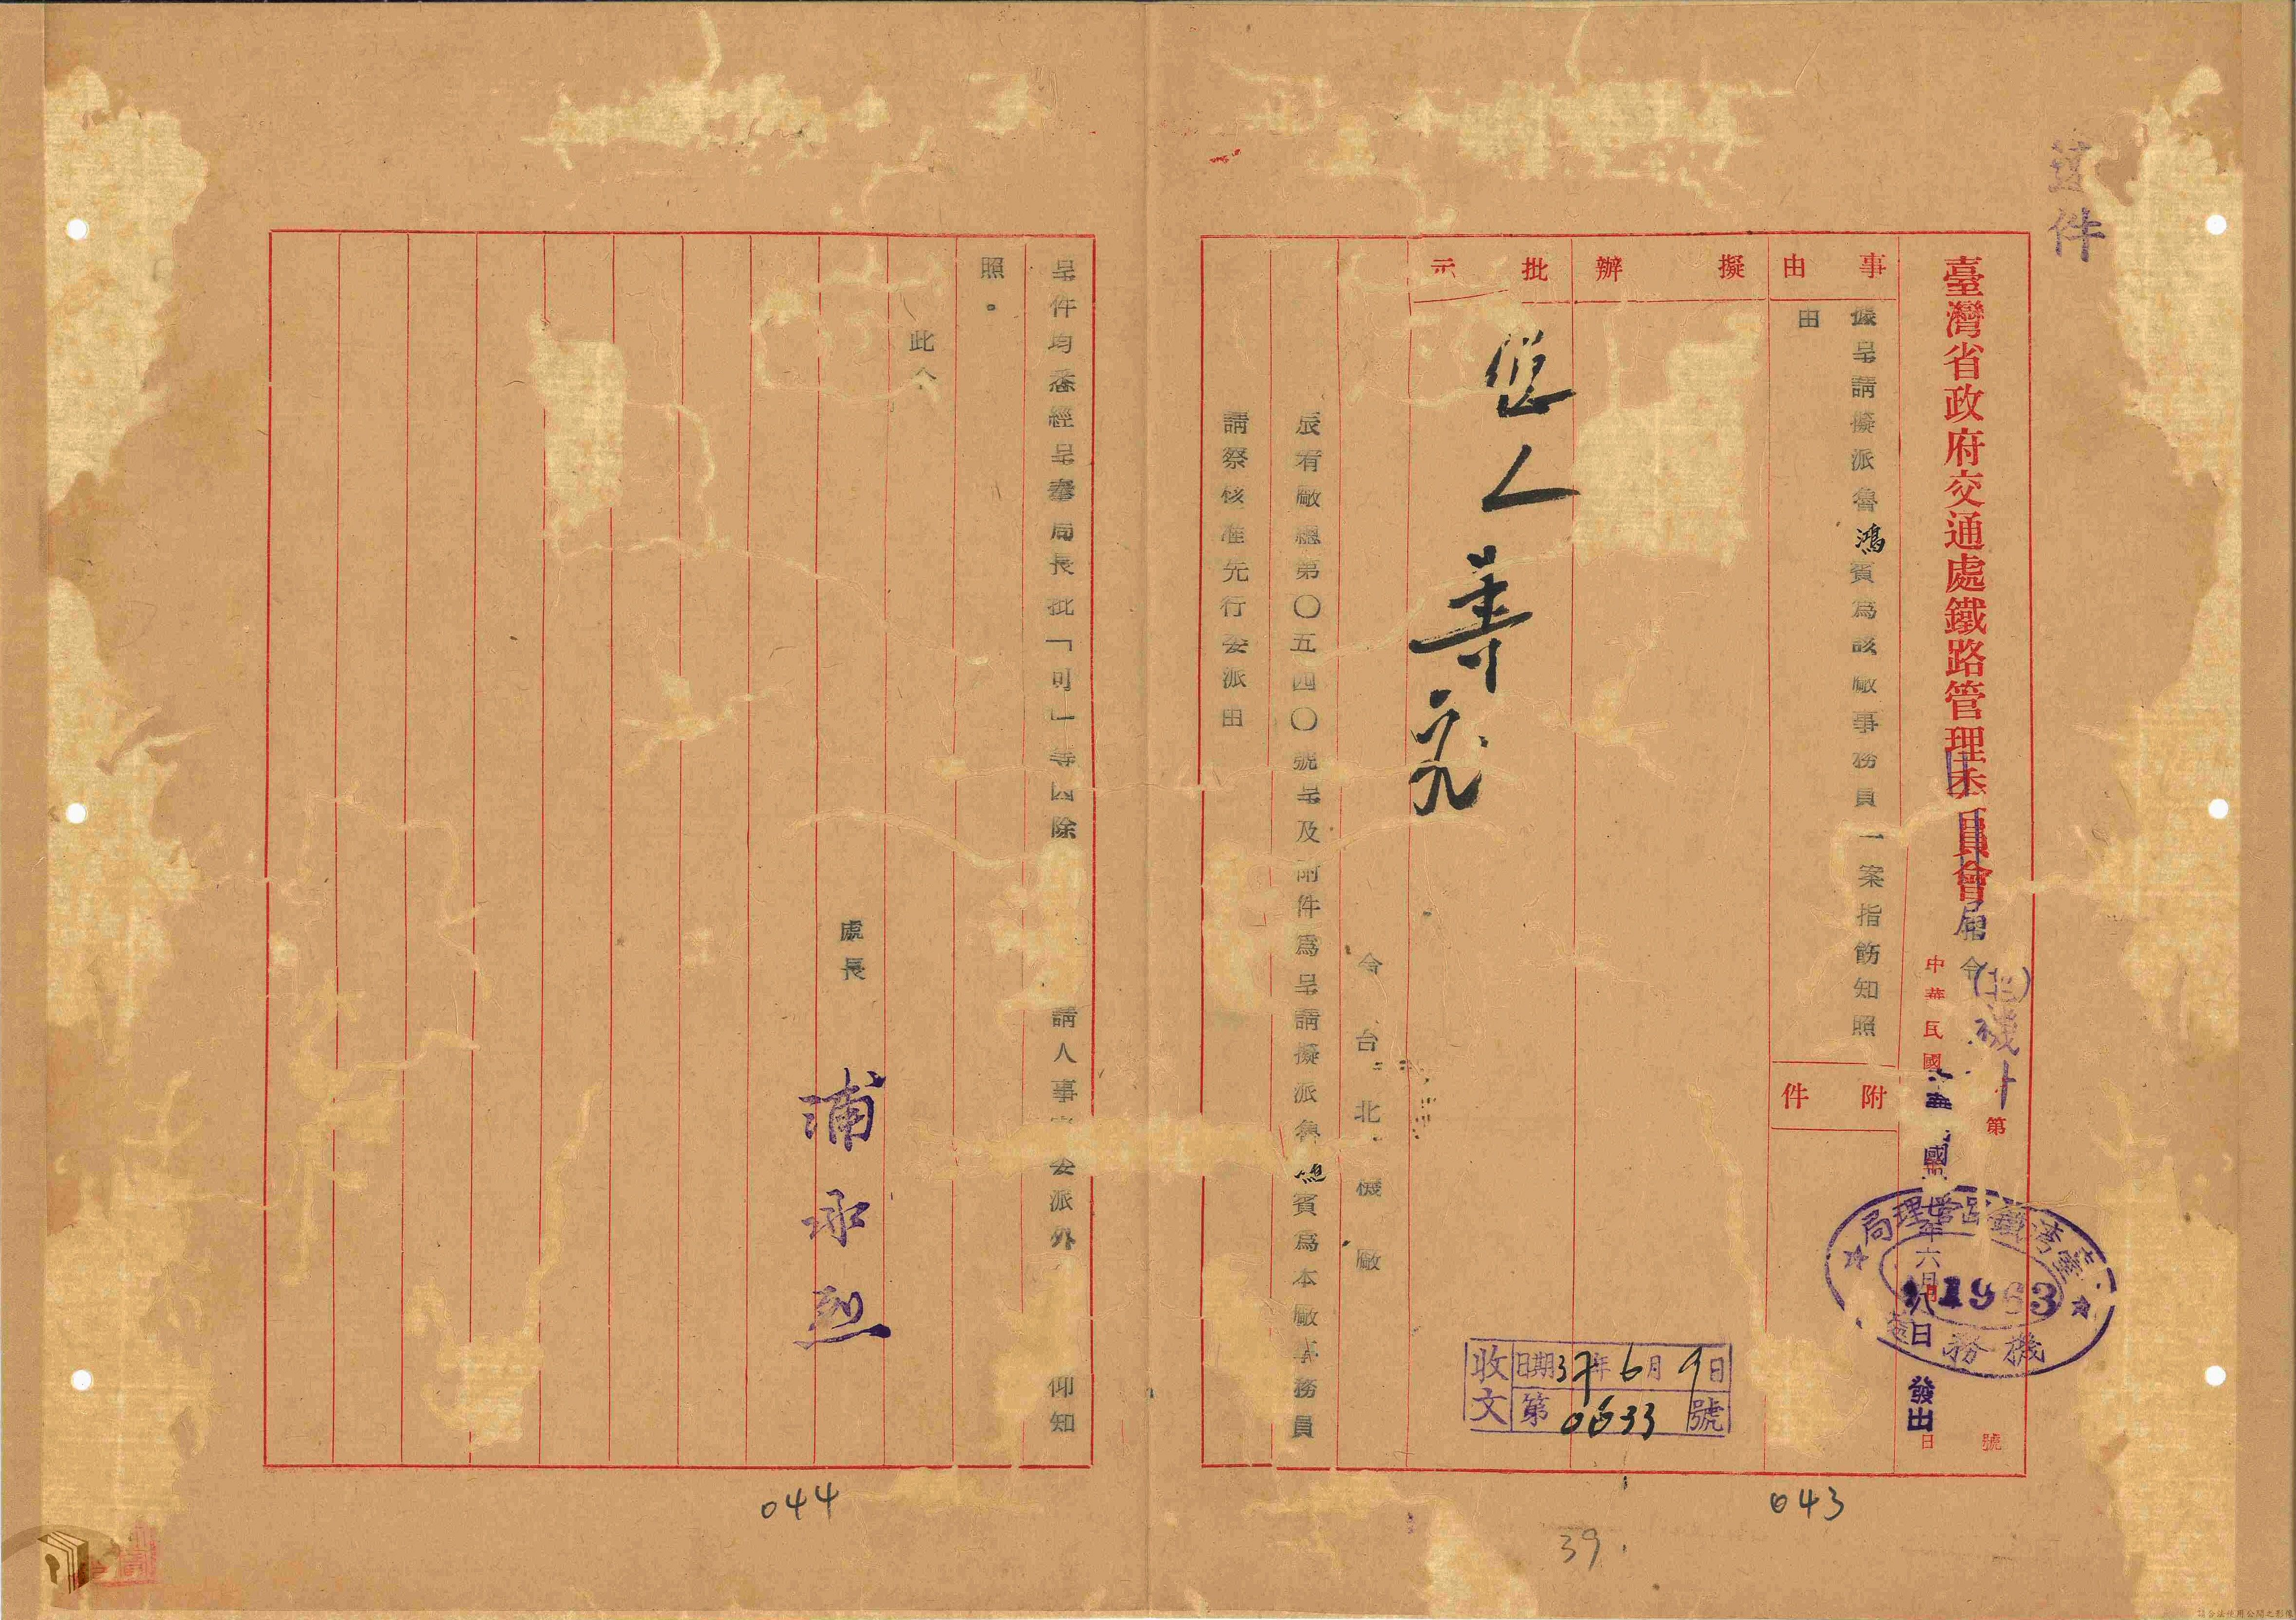 件
臺灣省政府交通處鐵路管理委員會
局
令
(北)機
第
號
中華民國
年六月八日
發出
日
臺灣鐵路管理局
機務
事由
據呈請擬派魯鴻賓為該廠事務員一案指飭知照
由
附件
擬辦
批示
收文
日期37年6月9日
第0633號
令台北機廠
辰宥廠總第〇五四〇號呈及附件為呈請擬派魯鴻賓為本廠事務員
請察核准先行委派由
呈件均悉經呈奉局長批「可」等因除
請人事
委派外
仰知
照。
此令
處長
浦承烈
043
044
39